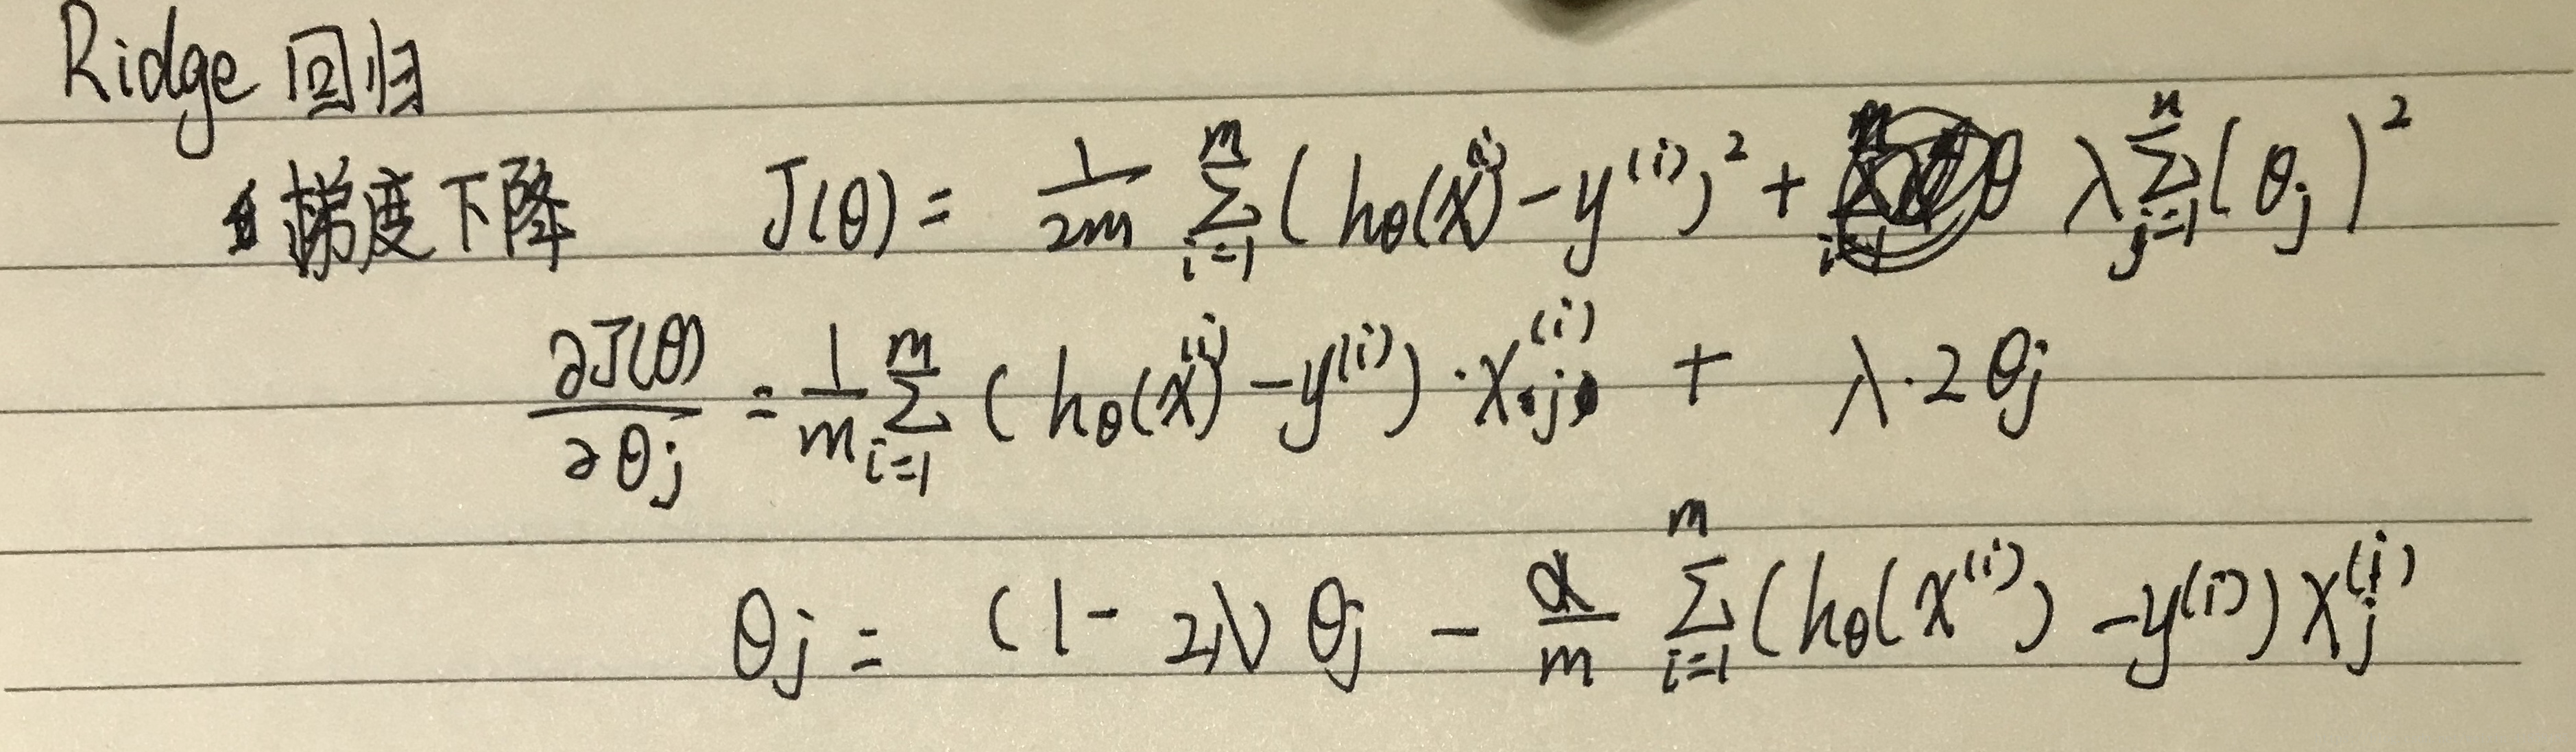 Ridge 回归
梯度下降 J(θ) = \frac{1}{2m} \sum_{i=1}^{m} (h_θ(x^{(i)}) - y^{(i)})^2 + λ \sum_{j=1}^{n} (θ_j)^2
\frac{∂J(θ)}{∂θ_j} = \frac{1}{m} \sum_{i=1}^{m} (h_θ(x^{(i)}) - y^{(i)}) · x_j^{(i)} + λ · 2θ_j
θ_j = (1 - 2λ) θ_j - \frac{α}{m} \sum_{i=1}^{m} (h_θ(x^{(i)}) - y^{(i)}) x_j^{(i)}